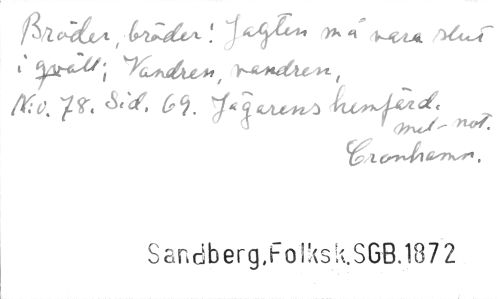 Bröder, bröder! Jagten må vara slut
i qväll; Vandren, vandren,
N:o. 78. Sid. 69. Jägarens hemfärd.
met-not.
Cronhamn.
Sandberg,Folksk.SGB.1872